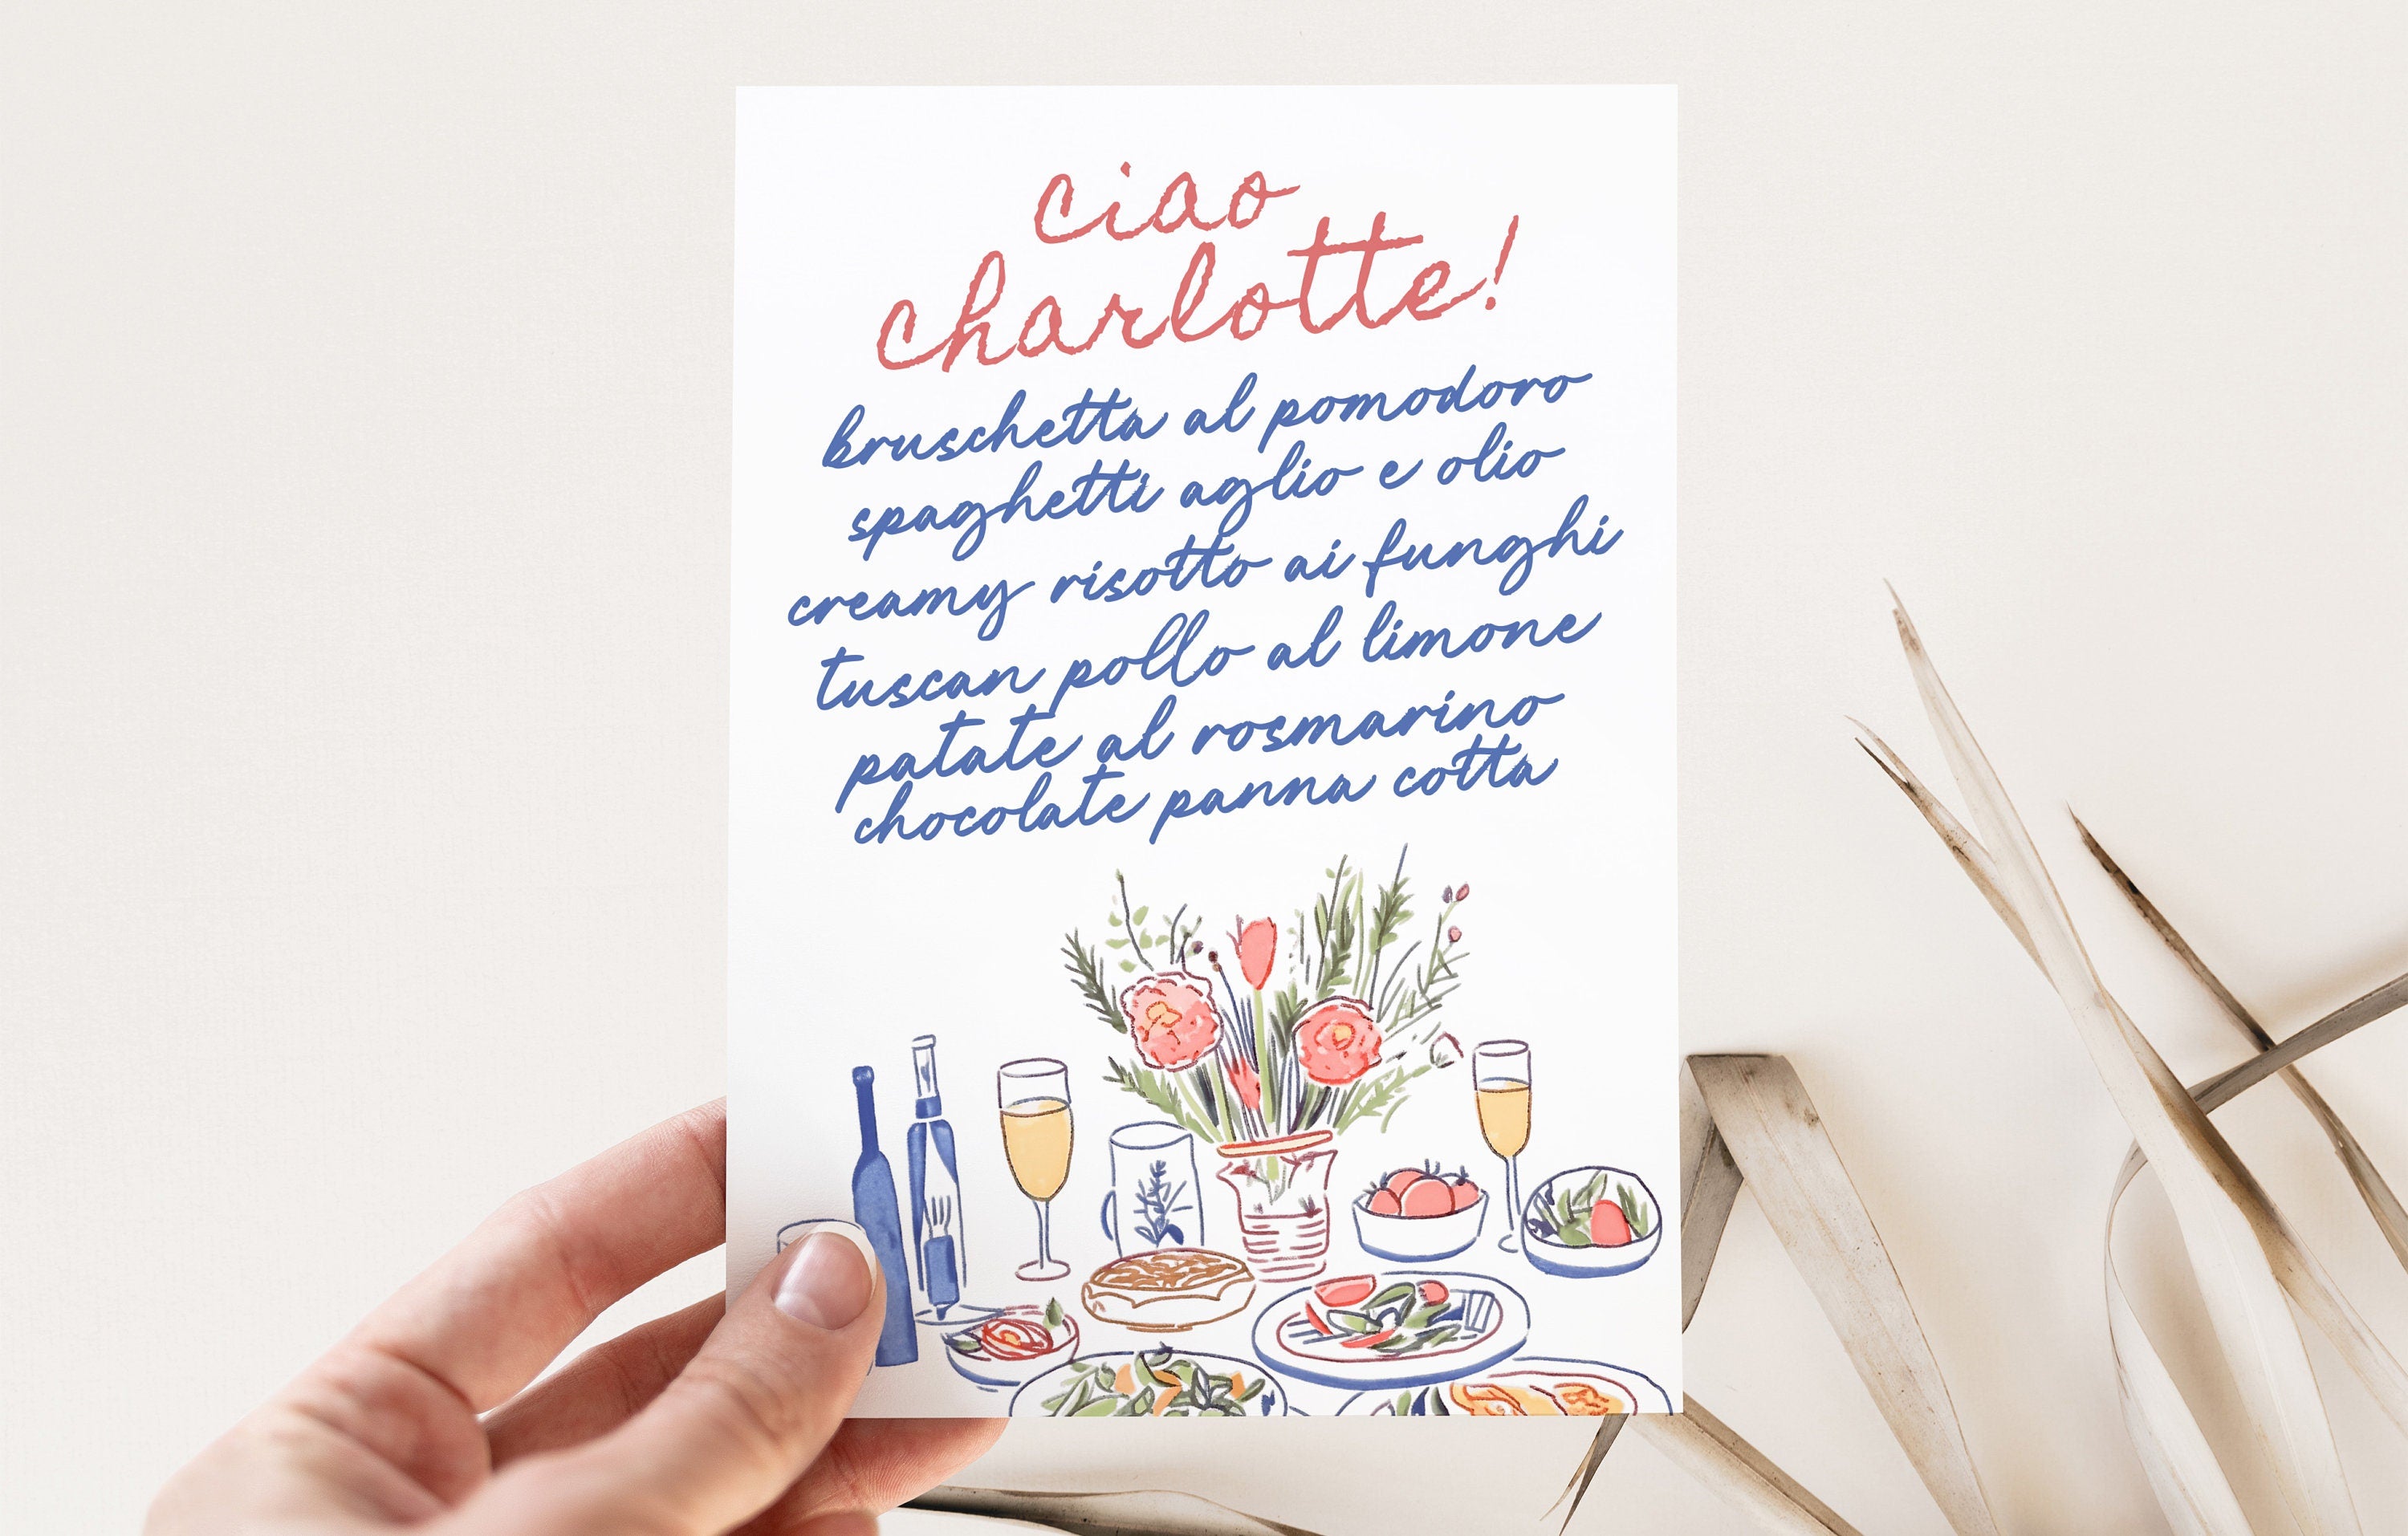 ciao
charlotte!
bruschetta al pomodoro
spaghetti aglio e olio
creamy risotto ai funghi
tuscan pollo al limone
patate al rosmarino
chocolate panna cotta